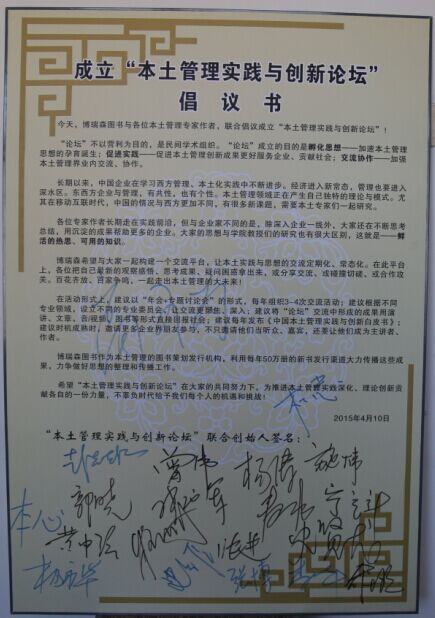 成立“本土管理实践与创新论坛”
倡 议 书
今天，博瑞森图书与各位本土管理专家作者，联合倡议成立“本土管理实践与创新论坛”！
“论坛”不以营利为目的，是民间学术组织。“论坛”成立的目的是孵化思想——加速本土管理
思想的孕育诞生；促进实践——促进本土管理创新成果更好服务企业、贡献社会；交流协作——加强
本土管理界业内交流、协作。
长期以来，中国企业在学习西方管理、本土化实践中不断进步。经济进入新常态，管理也要进入
深水区。东西方企业与管理，有共性，也有个性。本土管理领域正在产生自己独特的理论与模式。尤
其在移动互联时代，中国的情况与西方更加不同，有很多新课题，需要本土专家们一起研究。
各位专家作者长期走在实践前沿，但与企业家不同的是，除深入企业一线外，大家还在不断思考
总结，用沉淀的成果帮助更多的企业。大家的思想与学院教授们的研究也有很大区别，这就是——鲜
活的热思、可用的知识。
博瑞森希望与大家一起构建一个交流平台，让本土实践与思想的交流定期化、常态化。在此平台
上，各位把自己最新的观察感悟、思考成果、疑问困惑拿出来，或分享交流、或碰撞切磋、或合作攻
关。百花齐放、百家争鸣，一起走出中国本土管理的大未来！
在活动形式上，建议以“年会+专题讨论会”的形式，每年组织3-4次交流活动；建议根据不同
专业领域，设立不同的专业委员会，让交流更聚焦、深入；建议将“论坛”交流中形成的成果用演
讲、文章、各视频、图书等形式直接回报社会；建议每年发布《中国本土管理实践与创新白皮书》；
建议时机成熟时，邀请更多企业界朋友参与，不只邀请他们当听众、嘉宾，还要让他们成为主讲者、
作者。
博瑞森图书作为本土管理的图书策划发行机构，利用每年50万册的新书发行渠道大力传播这些成
果，力争做好思想的整理和传播工作。
希望“本土管理实践与创新论坛”在大家的共同努力下，为推进本土管理实践深化、理论创新贡
献各自的一份力量，不辜负时代给予我们每个人的机遇和挑战！
2015年4月10日
“本土管理实践与创新论坛”联合创始人签名：
曾伟 杨伟 施炜
郭晓
本心
黄中强
杨永华 张博